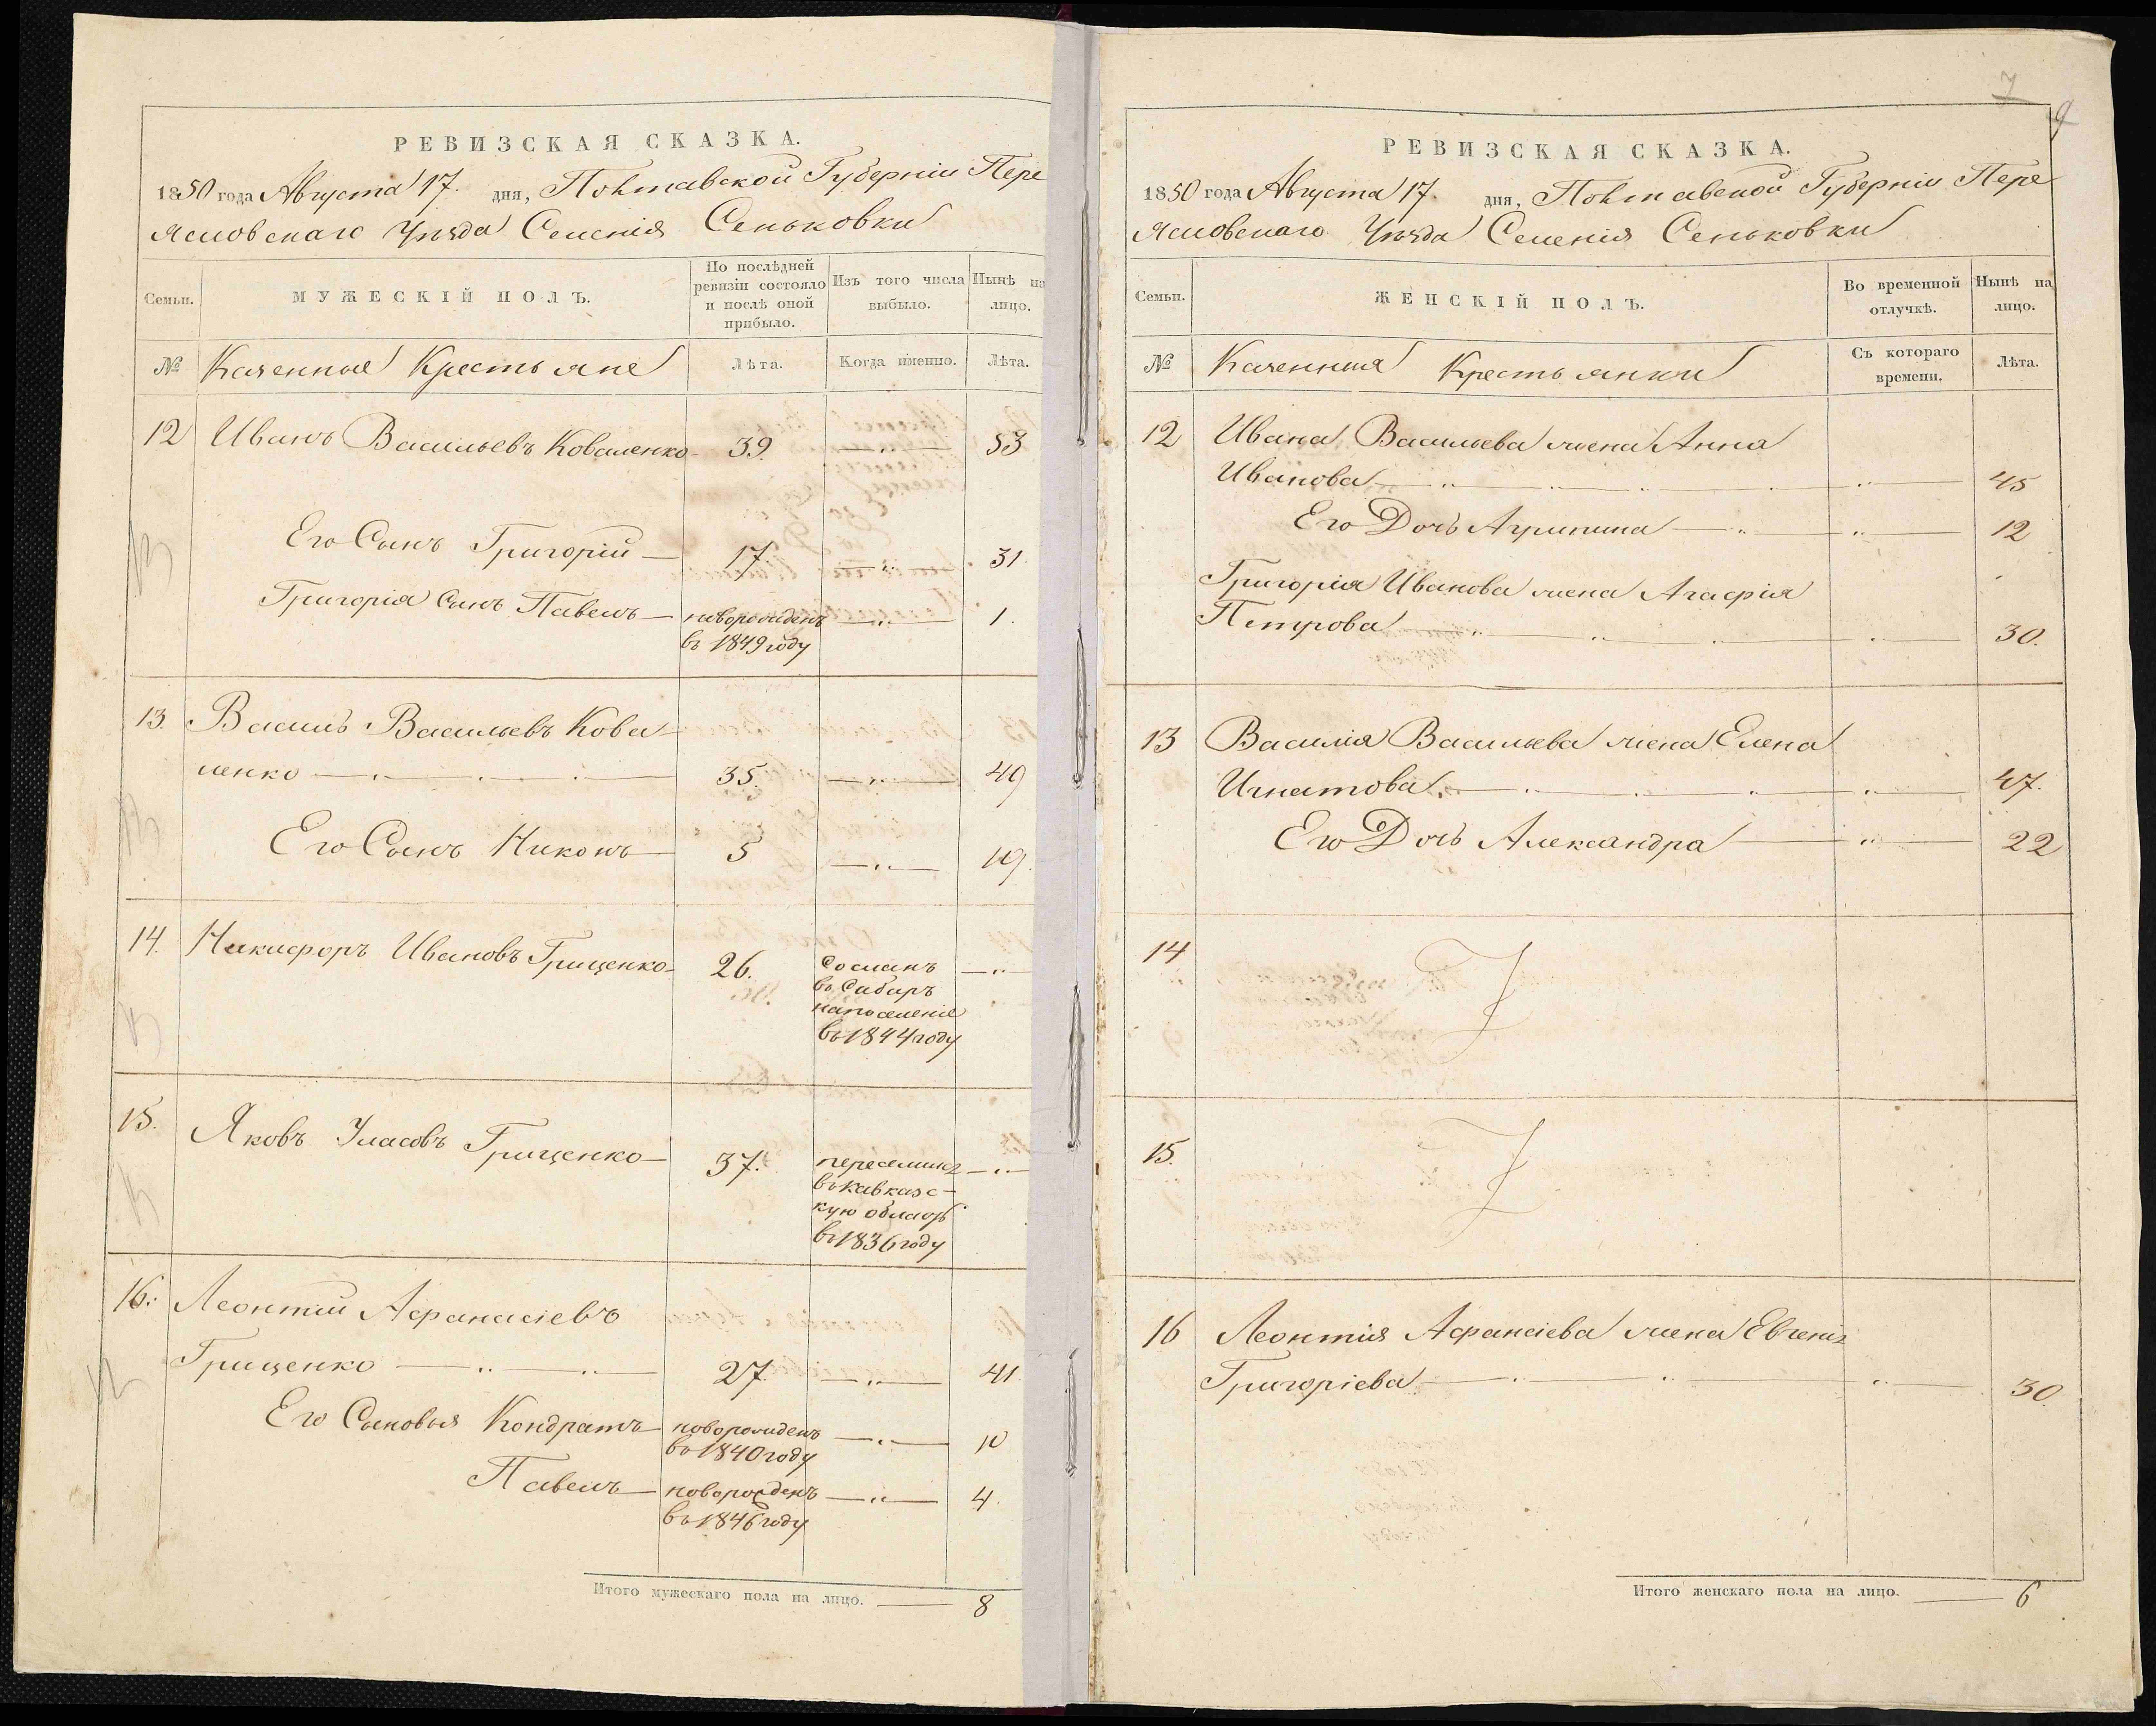 РЕВИЗСКАЯ СКАЗКА.
1850 года Августа 17. дня, Полтавской Губерніи Пере
ясловскаго Уѣзда Селенія Сеньковки
Семьи.
МУЖЕСКІЙ ПОЛЪ.
По послѣдней
ревизіи состояло
и послѣ оной
прибыло.
Изъ того числа
выбыло.
Нынѣ на
лицо.
№
Казенные Крестьяне
Лѣта.
Когда именно.
Лѣта.
12 Иванъ Васильевъ Коваленко 39. —„— 53
Его Сынъ Григорій — 17. —„— 31.
Григорія Сынъ Павелъ — новорожденъ —„— 1.
въ 1849 году
13. Василь Васильевъ Кова-
ленко — 35. —„— 49
Его Сынъ Никонъ — 5 —„— 19.
14. Никифоръ Ивановъ Грищенко 26. Сосланъ —„
въ Сибирь
на поселеніе
въ 1844 году
15. Яковъ Уласовъ Грищенко — 37. переселился —„—
въ Кавказс-
кую область
въ 1836 году
16. Леонтій Афанасіевъ
Грищенко —„—„— 27. —„— 41
Его Сыновья Кондратъ — новорожденъ —„— 10
въ 1840 году
Павелъ — новорожденъ —„— 4.
въ 1846 году
Итого мужескаго пола на лицо. — 8
7
9
РЕВИЗСКАЯ СКАЗКА.
1850 года Августа 17. дня, Полтавской Губерніи Пере
ясловскаго Уѣзда Селенія Сеньковки
Семьи.
ЖЕНСКІЙ ПОЛЪ.
Во временной
отлучкѣ.
Нынѣ на
лицо.
№
Казенныя Крестьянки
Съ котораго
времени.
Лѣта.
12 Ивана Васильева жена Анна
Иванова —„— 45
Его Дочь Агрипина —„— 12
Григорія Иванова жена Агафія
Петрова —„— 30.
13 Василія Васильева жена Елена
Игнатова. —„— 47.
Его Дочь Александра —„— 22
14
15.
16 Леонтія Афанасіева жена Евгенія
Григоріева —„— 30.
Итого женскаго пола на лицо. — 6